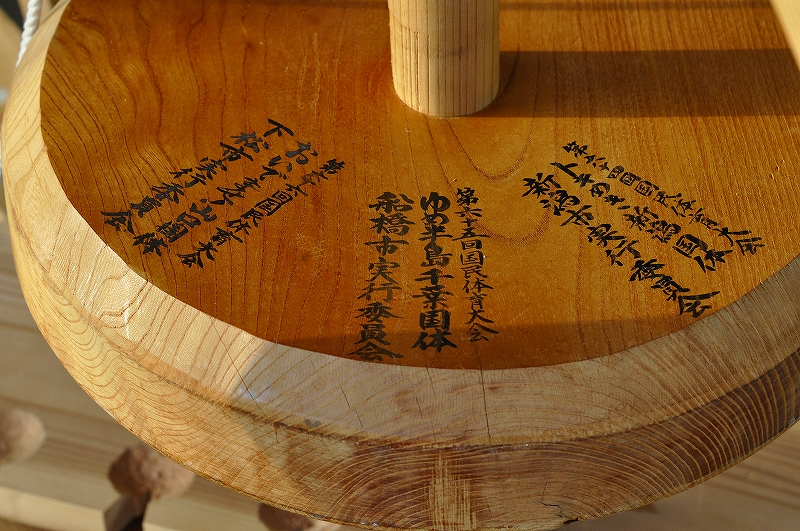 第六十四回国民体育大会
トキめき新潟国体
新潟市実行委員会
第六五回国民体育大会
ゆめ半島千葉国体
船橋市実行委員会
第六六回国民体育大会
おいでませ!山口国体
下松市実行委員会